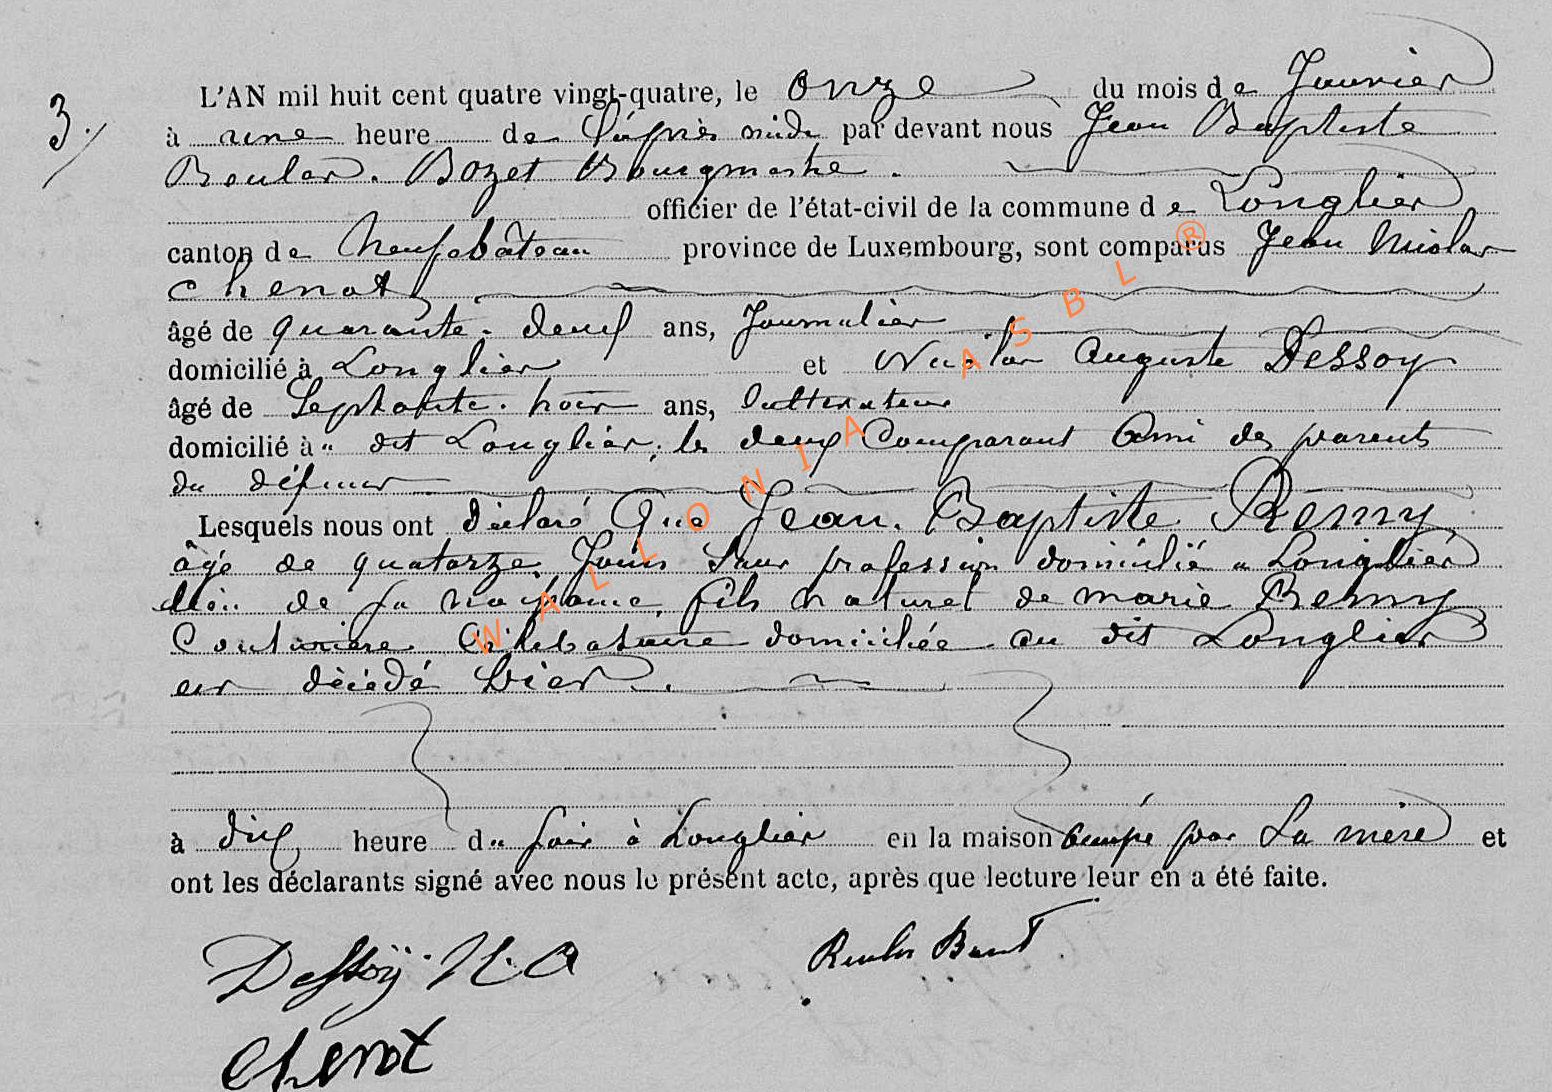 3.
L'AN mil huit cent quatre vingt-quatre, le onze du mois de Janvier
à une heure de l'après midi par devant nous Jean Baptiste
Bozet Bourgmestre.
officier de l'état-civil de la commune de Longlier
canton de Neufchâteau province de Luxembourg, sont comparus Jean Nicolas
Chenot
âgé de quarante-deux ans, Journalier
domicilié à Longlier et Nicolas Auguste Dessoy
âgé de Septante-trois ans, cultivateur
domicilié à dit Longlier, les deux Comparant Ami des parents
du défunt
Lesquels nous ont déclaré Que Jean-Baptiste Remy
âgé de quatorze Jours Sans profession domicilié à Longlier
lieu de sa naissance, fils naturel de marie Remy
Couturière Célibataire domiciliée au dit Longlier
est décédé hier.
à dix heure du soir à Longlier en la maison occupé par La mère et
ont les déclarants signé avec nous le présent acte, après que lecture leur en a été faite.
Dessoÿ. N. A
Chenot
WALLONIA ASBL ®